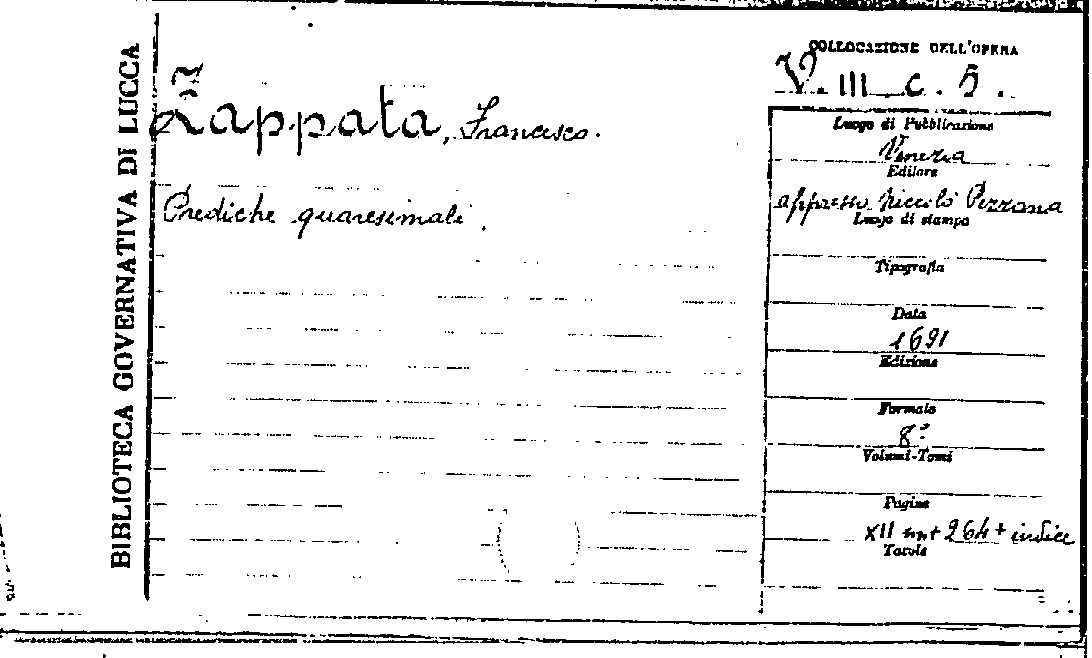 BIBLIOTECA GOVERNATIVA DI LUCCA
Zappata, Francesco.
Prediche quaresimali.
COLLOCAZIONE DELL'OPERA
V. III c. 5.
Luogo di Pubblicazione
Venezia
Editore
appresso Niccolò Pezzana
Luogo di stampa
Tipografia
Data
1691
Edizione
Formato
8º
Volumi-Tomi
Pagine
XII nn + 264 + indice
Tavole